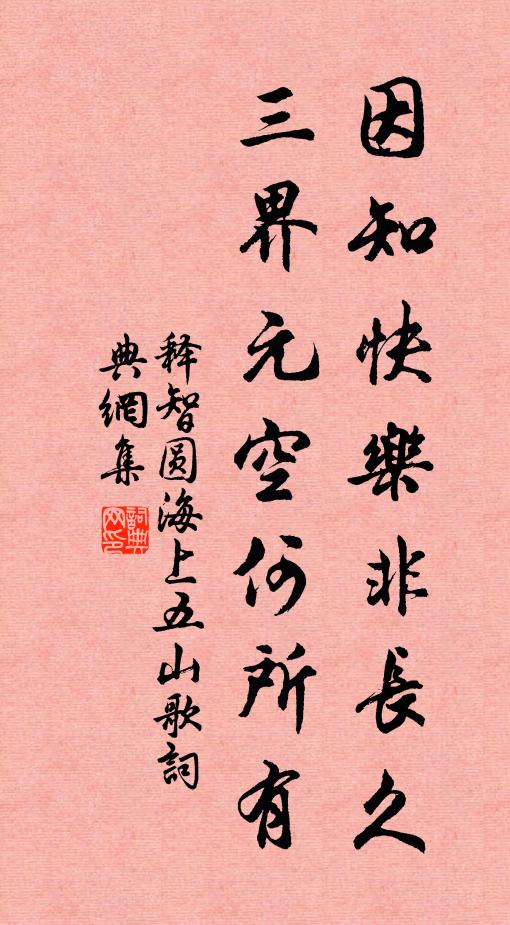 因知快樂非長久
三界元空何所有
释智圆海上五山歌詞
典網集
詞典网印